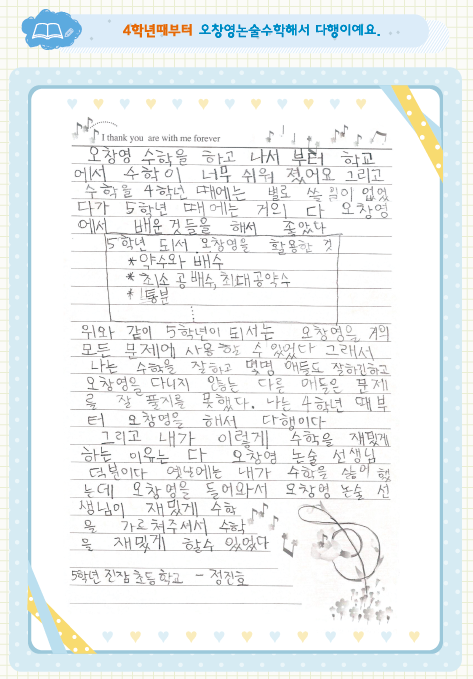 4학년때부터 오창영논술수학해서 다행이예요.
I thank you are with me forever
오창영 수학을 하고 나서 부터 학교
에서 수학이 너무 쉬워 졌어요 그리고
수학을 4학년 때에는 별로 쓸 일이 없었
다가 5학년 때에는 거의 다 오창영
에서 배운것들을 해서 좋았다
5학년 되서 오창영을 활용한 것
*약수와 배수
*최소 공배수, 최대공약수
*통분
⋮
위와 같이 5학년이 되서는 오창영을 거의
모든 문제에 사용할 수 있었다 그래서
나는 수학을 잘하고 몇명 애들도 잘하긴하고
오창영을 다니지 않는 다른 애들은 문제
를 잘 풀지를 못했다. 나는 4학년 때부
터 오창영을 해서 다행이다
그리고 내가 이렇게 수학을 재밌게
하는 이유는 다 오창영 논술 선생님
덕분이다 옛날에는 내가 수학을 싫어 했
는데 오창영을 들어와서 오창영 논술 선
생님이 재밌게 수학
을 가르쳐주셔서 수학
을 재밌게 할수 있었다
5학년 진잠초등학교 - 정진호